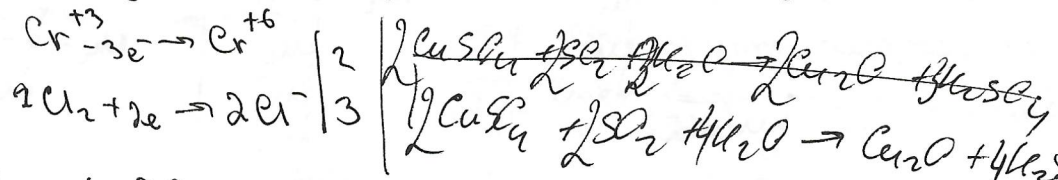 Cr⁺³ -3e⁻ → Cr⁺⁶ | 2
Cl₂ + 2e → 2Cl⁻ | 3
2CuSO₄ + 2SO₂ + 2H₂O → 2Cu₂O + 3H₂SO₄
2CuSO₄ + 2SO₂ + 4H₂O → Cu₂O + 4H₂